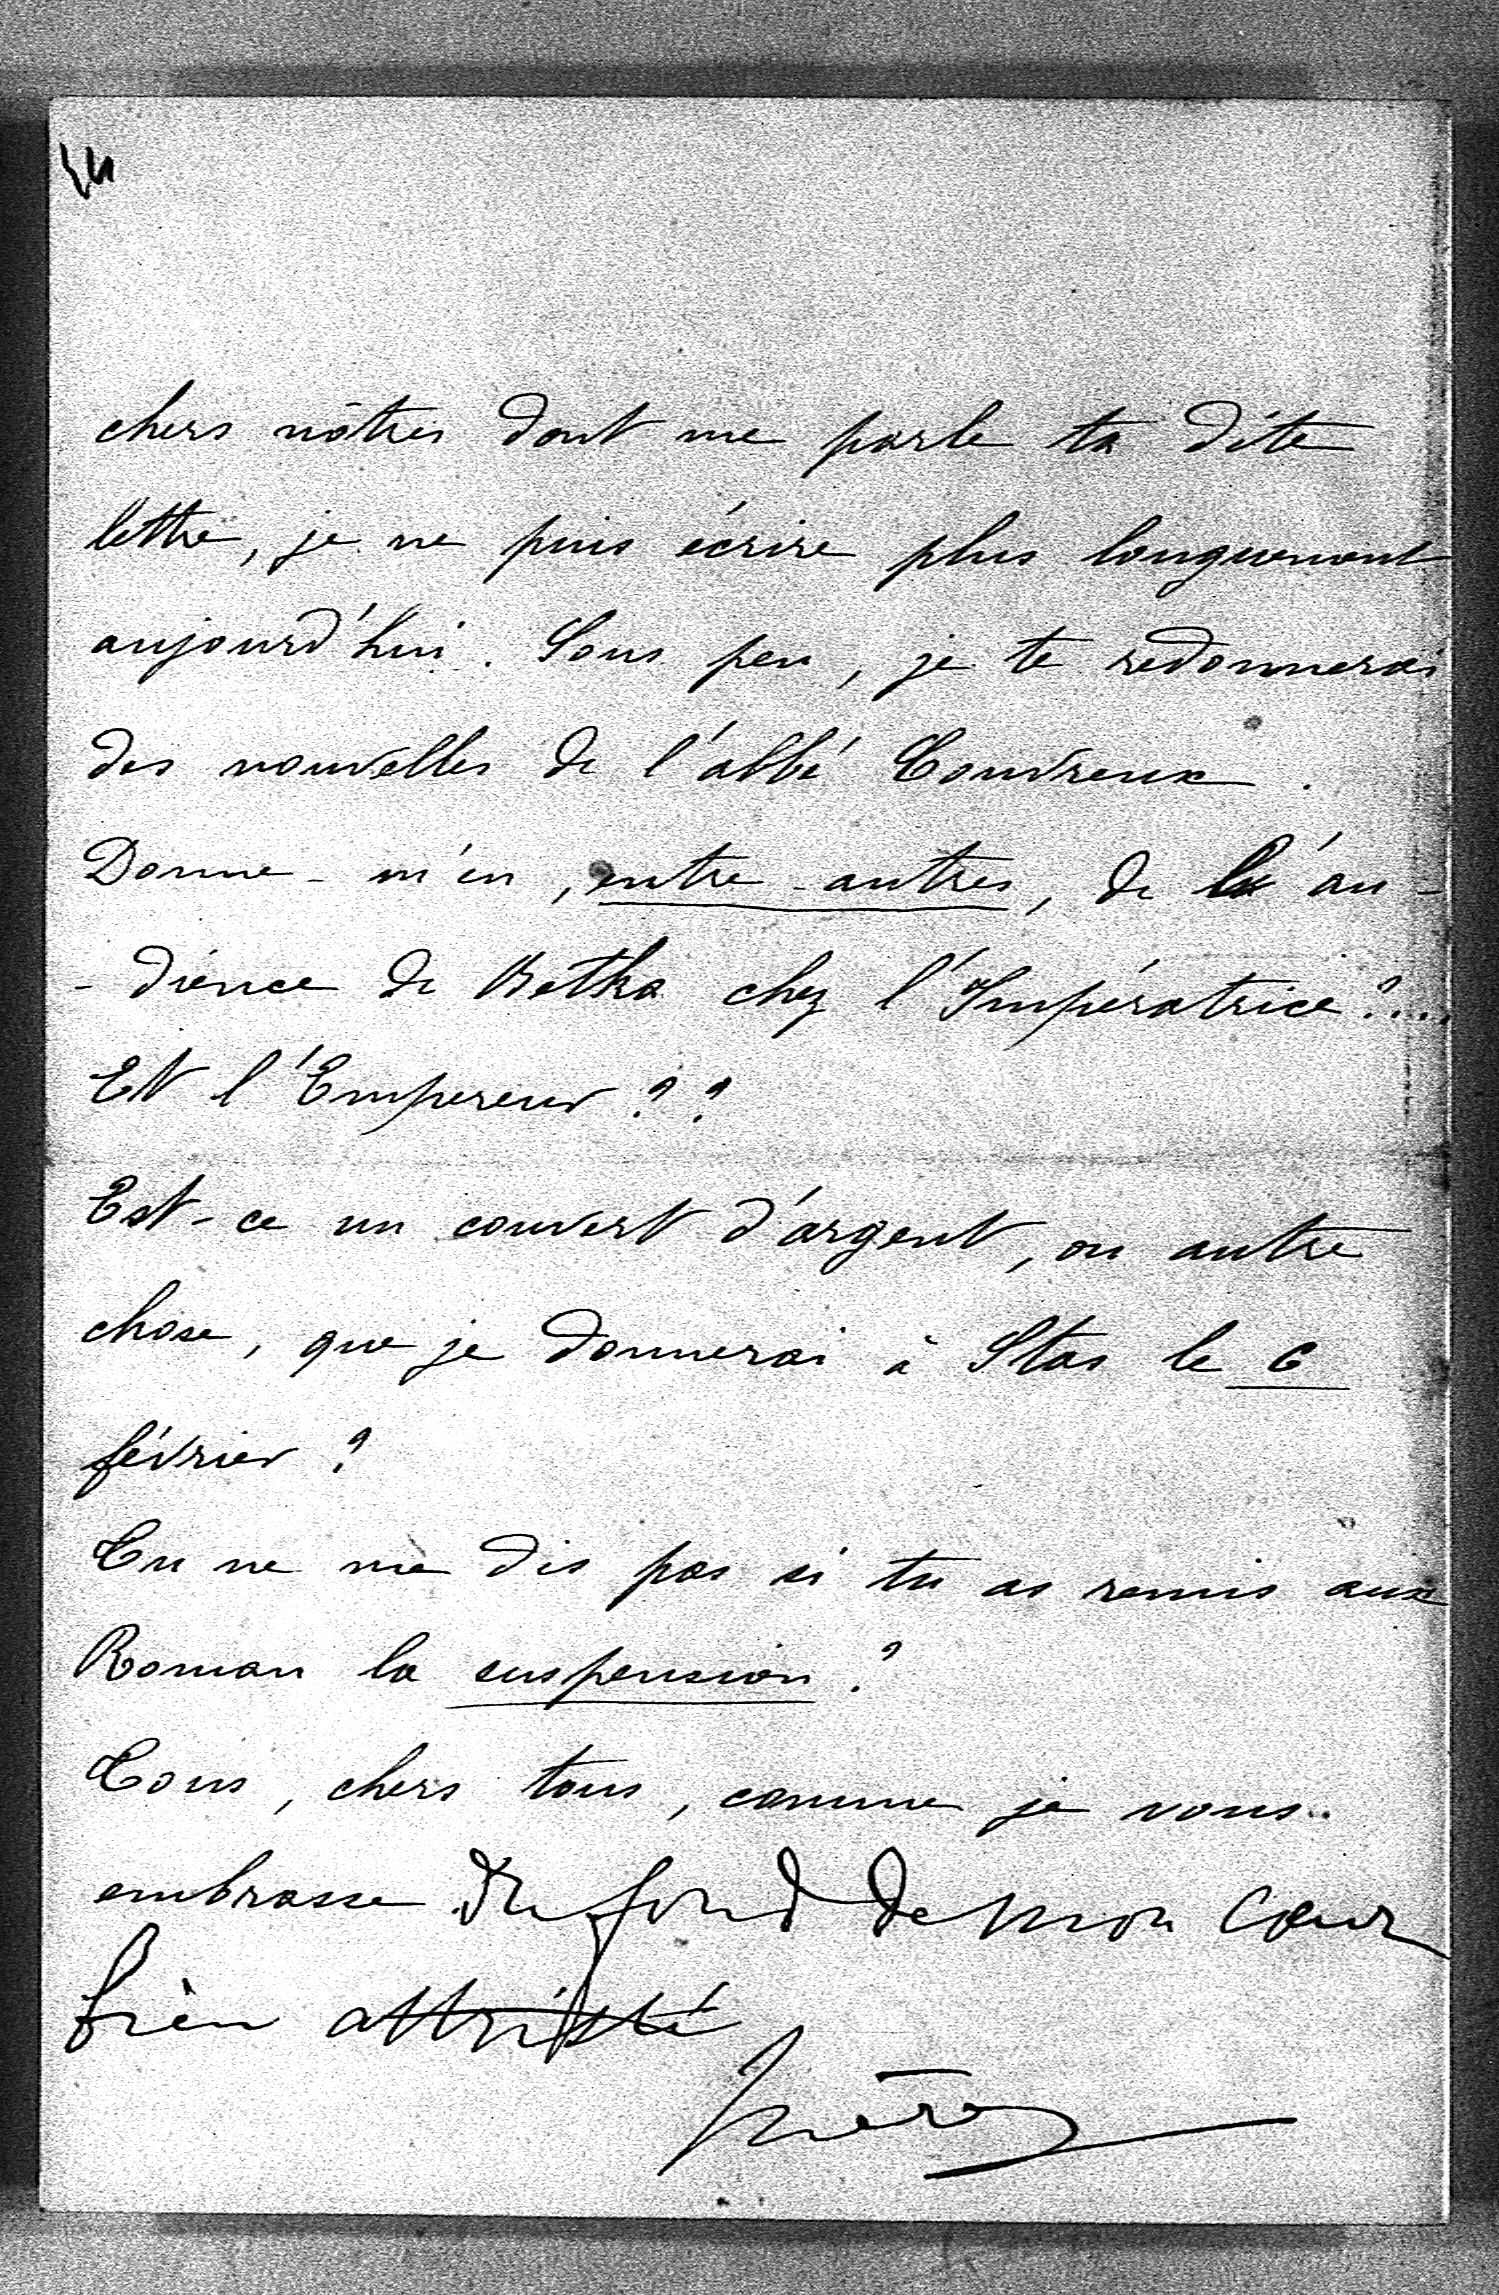 chers nôtres dont me parle ta dite
lettre, je ne puis écrire plus longuement
aujourd'hui. Sous peu, je te redonnerai
des nouvelles de l'abbé Couvreux.
Donne-m'en, entre-autres, de l'au-
-dience de Retka chez l'Impératrice?...
Et l'Empereur??
Est-ce un couvert d'argent, ou autre
chose, que je donnerai à Stas le 6
février?
Tu ne me dis pas si tu as remis aux
Roman la suspension?
Tous, chers tous, comme je vous
embrasse du fond de mon cœur
bien attristé